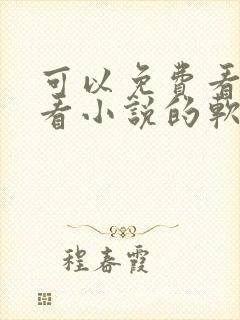 可以免费看
看小説的軟
程春霞